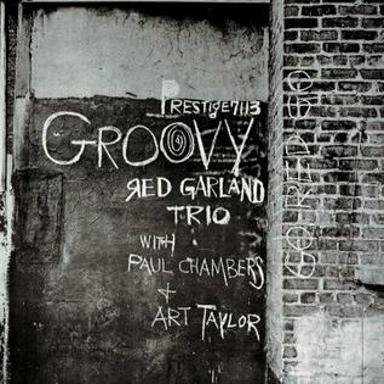 PRESTiGE7113
GROOVY
RED GARLAND
TRIO
WITH
PAUL CHAMBERS
+
ART TAYLOR
GO RED GO